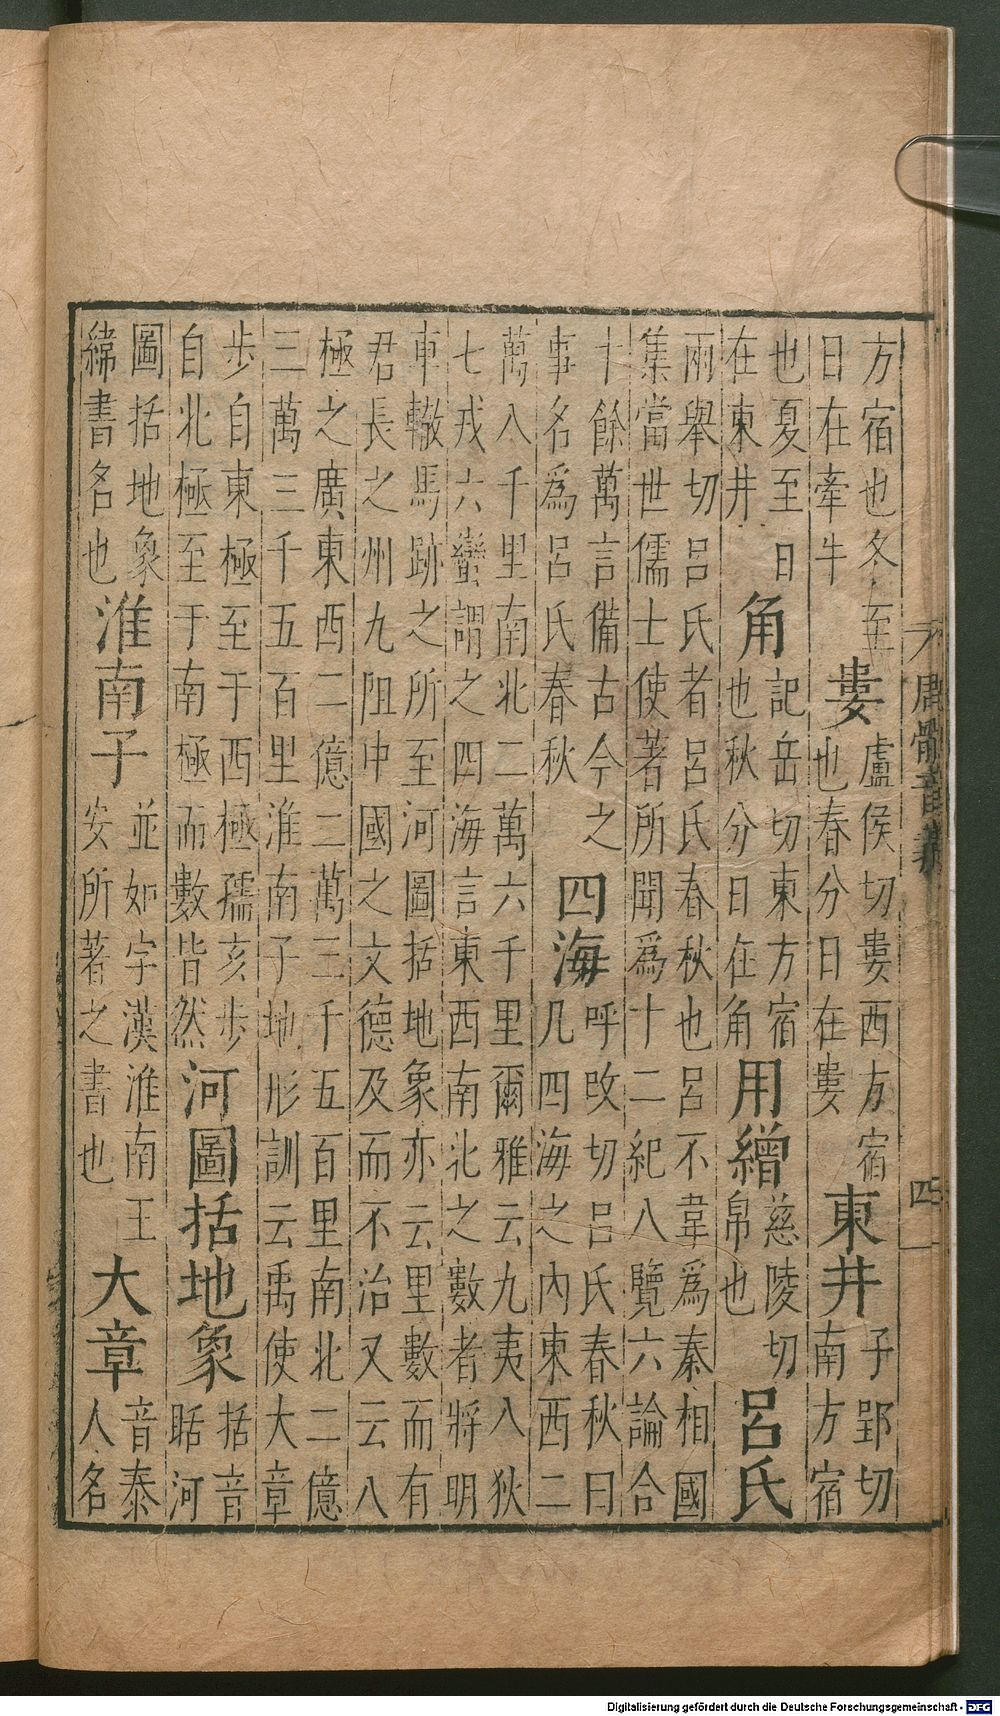 方宿也冬至
日在牽牛
婁
盧侯切婁西方宿
也春分日在婁
東井
子郢切
南方宿
也夏至日
在東井
角
記岳切東方宿
也秋分日在角
用繒
慈陵切
帛也
呂氏
雨舉切呂氏者呂氏春秋也呂不韋為秦相國
集當世儒士使著所聞為十二紀八覽六論合
十餘萬言備古今之
事名為呂氏春秋
四海
呼改切呂氏春秋曰
凡四海之內東西二
萬八千里南北二萬六千里爾雅云九夷八狄
七戎六蠻謂之四海言東西南北之數者將明
車轍馬跡之所至河圖括地象亦云里數而有
君長之州九阻中國之文德及而不治又云八
極之廣東西二億二萬三千五百里南北二億
三萬三千五百里淮南子地形訓云禹使大章
步自東極至于西極孺亥步
自北極至于南極而數皆然
河圖括地象
括音
聒河
圖括地象
緯書名也
淮南子
並如字漢淮南王
安所著之書也
大章
音泰
人名
周髀音義
四
Digitalisierung gefördert durch die Deutsche Forschungsgemeinschaft - DFG